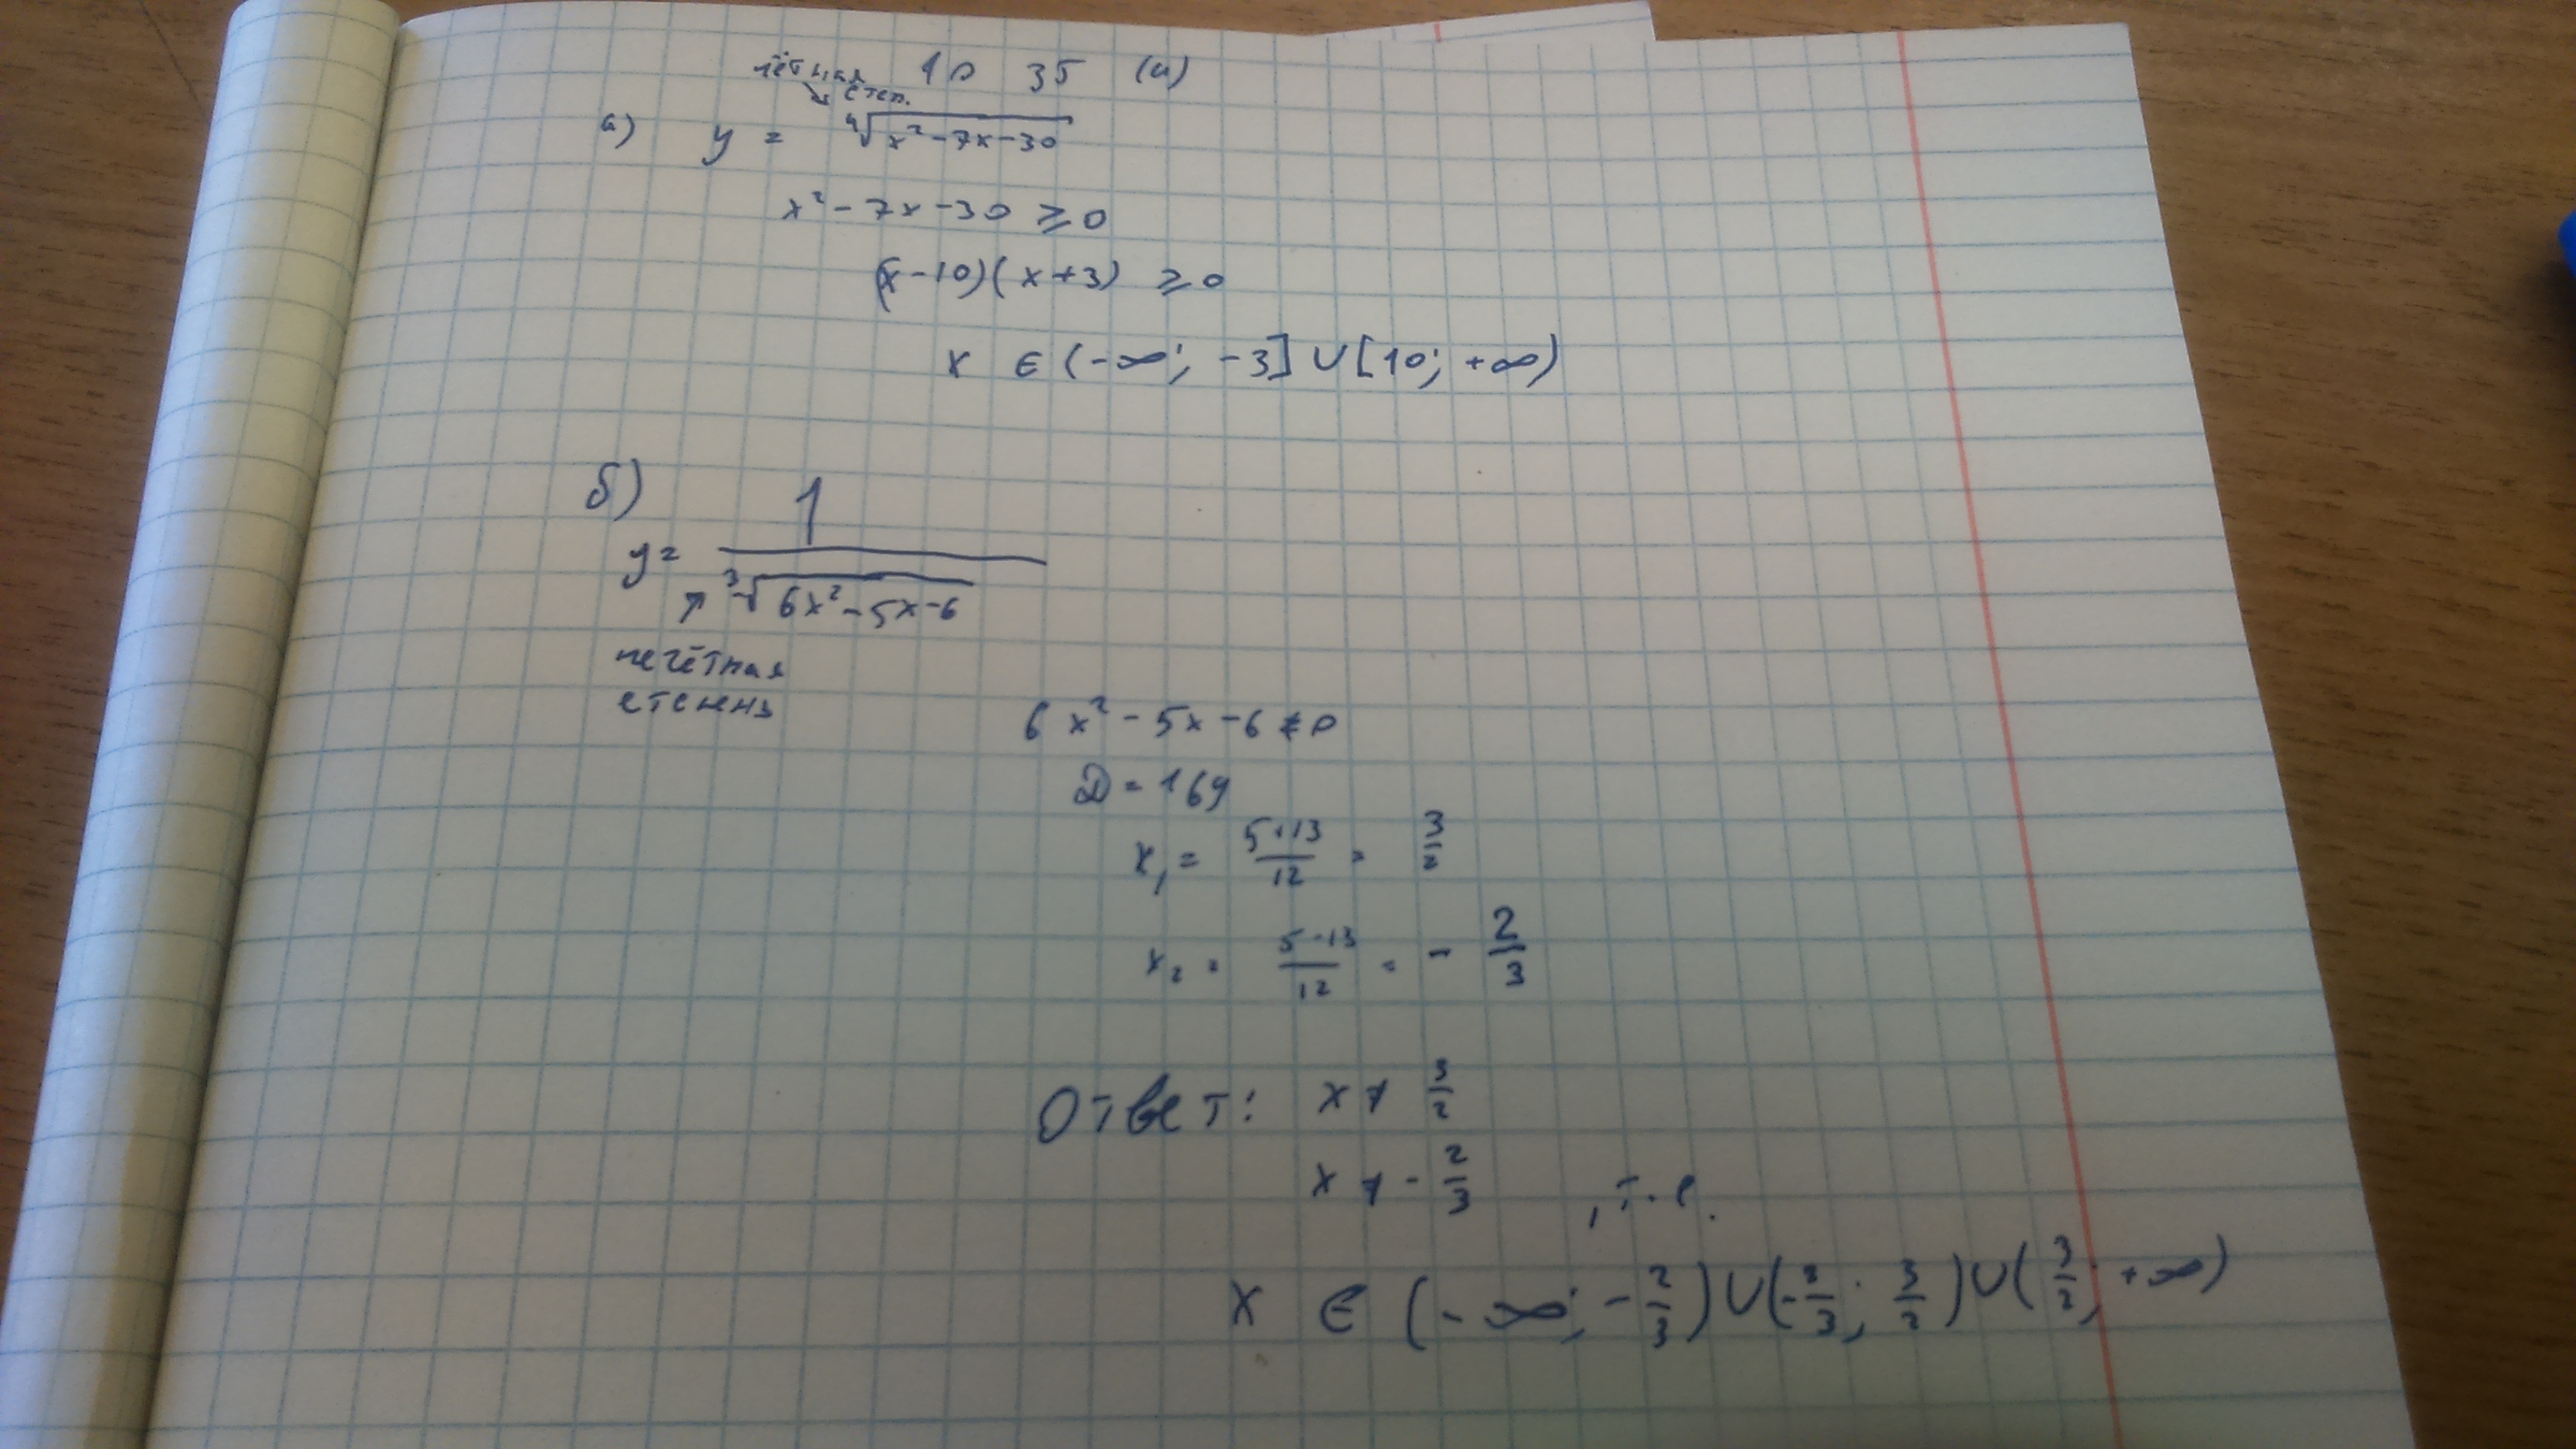 чётная степ. 10 35 (а)
а) y = ⁴√(x² - 7x - 30)
x² - 7x - 30 ⩾ 0
(x - 10)(x + 3) ⩾ 0
x ∈ (-∞; -3] ∪ [10; +∞)
б)
y = 1/³√(6x² - 5x - 6)
нечётная
степень
6x² - 5x - 6 ≠ 0
D = 169
x₁ = (5+13)/12 = 3/2
x₂ = (5-13)/12 = - 2/3
Ответ: x ≠ 3/2
x ≠ - 2/3 , т.е.
x ∈ (-∞; -2/3) ∪ (-2/3; 3/2) ∪ (3/2; +∞)